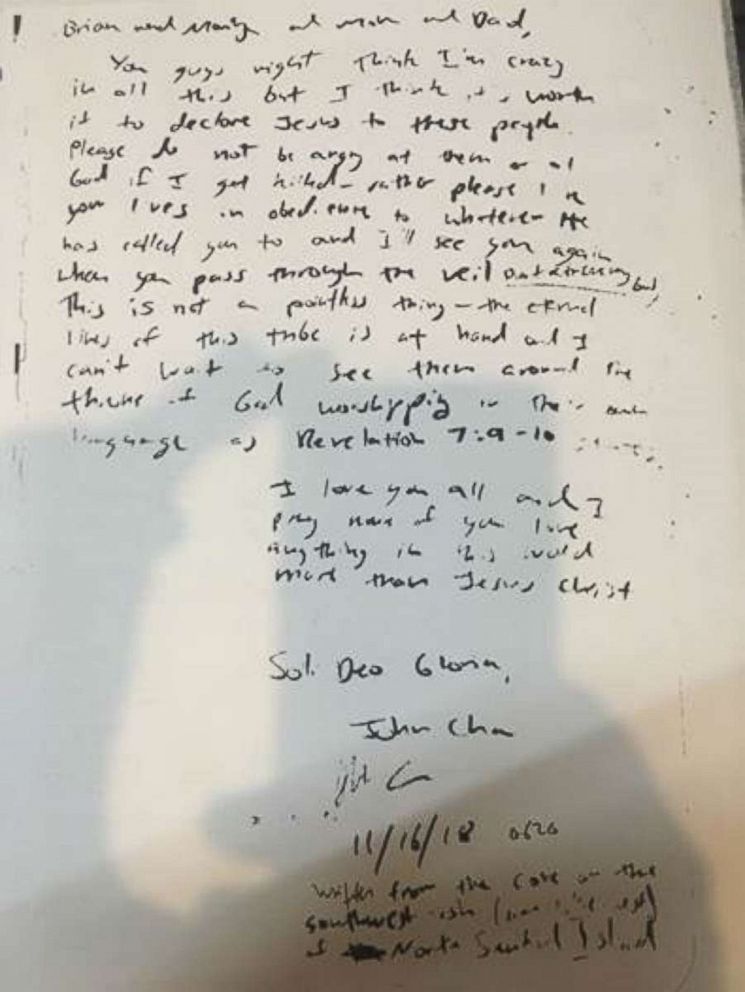 Brian and Mary and Mom and Dad,
You guys might think I'm crazy
in all this but I think it's worth
it to declare Jesus to these people.
Please do not be angry at them or at
God if I get killed - rather please live
your lives in obedience to whatever He
has called you to and I'll see you again
when you pass through the veil
This is not a pointless thing - the eternal
lives of this tribe is at hand and I
can't wait to see them around the
throne of God worshipping in their own
language as Revelation 7:9-10 states.
I love you all and I
pray none of you love
anything in this world
more than Jesus Christ
Soli Deo Gloria,
John Chau
11/16/18 0620
Written from the cove on the
southwest
of North Sentinel Island